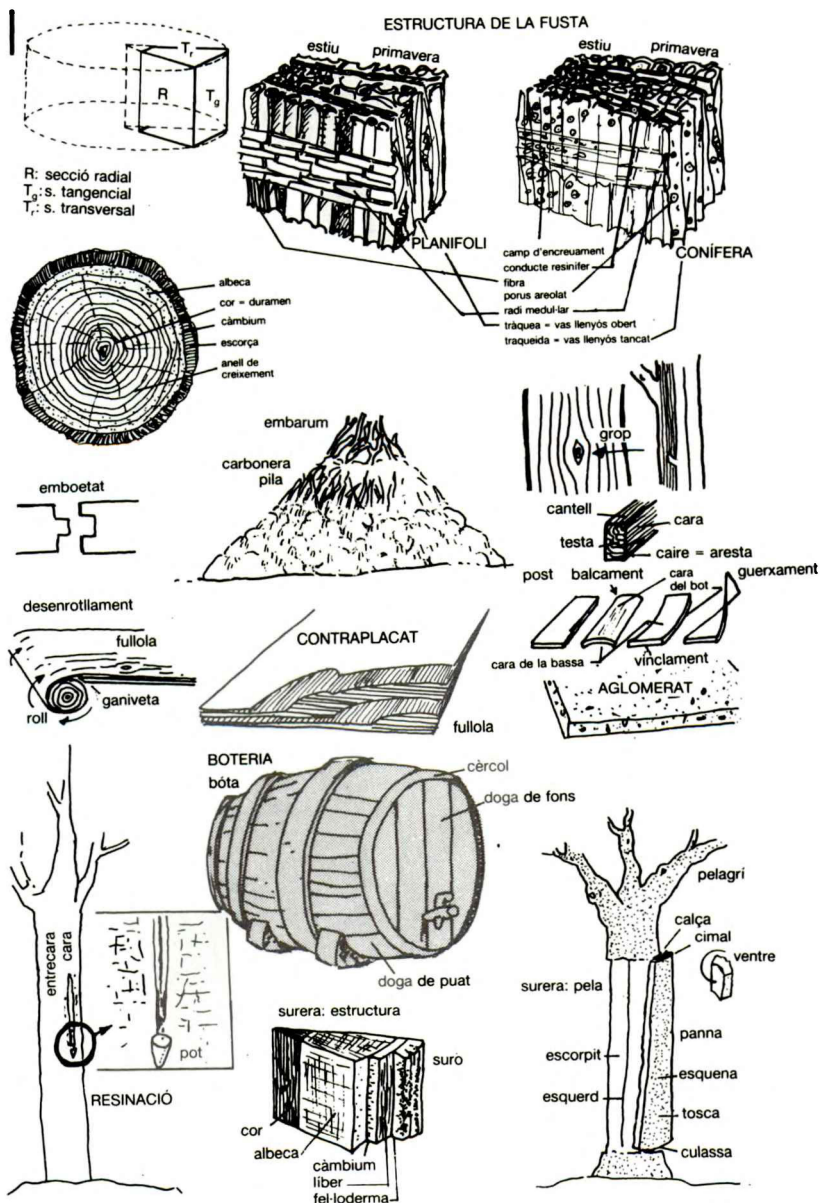 ESTRUCTURA DE LA FUSTA
estiu primavera
estiu primavera
Tr
R
Tg
R: secció radial
Tg: s. tangencial
Tr: s. transversal
PLANIFOLI
CONÍFERA
camp d'encreuament
conducte resinífer
fibra
porus areolat
radi medul·lar
tràquea = vas llenyós obert
traqueida = vas llenyós tancat
albeca
cor = duramen
càmbium
escorça
anell de
creixement
embarum
carbonera
pila
grop
emboetat
cantell
cara
testa
caire = aresta
post balcament
cara
del bot
guerxament
cara de la bassa
vinclament
desenrotllament
fullola
ganiveta
roll
CONTRAPLACAT
fullola
AGLOMERAT
BOTERIA
bóta
cèrcol
doga de fons
doga de puat
entrecara
cara
pot
RESINACIÓ
surera: estructura
suro
cor
albeca
càmbium
líber
fel·loderma
pelagrí
calça
cimal
ventre
surera: pela
panna
escorpit
esquena
esquerd
tosca
culassa